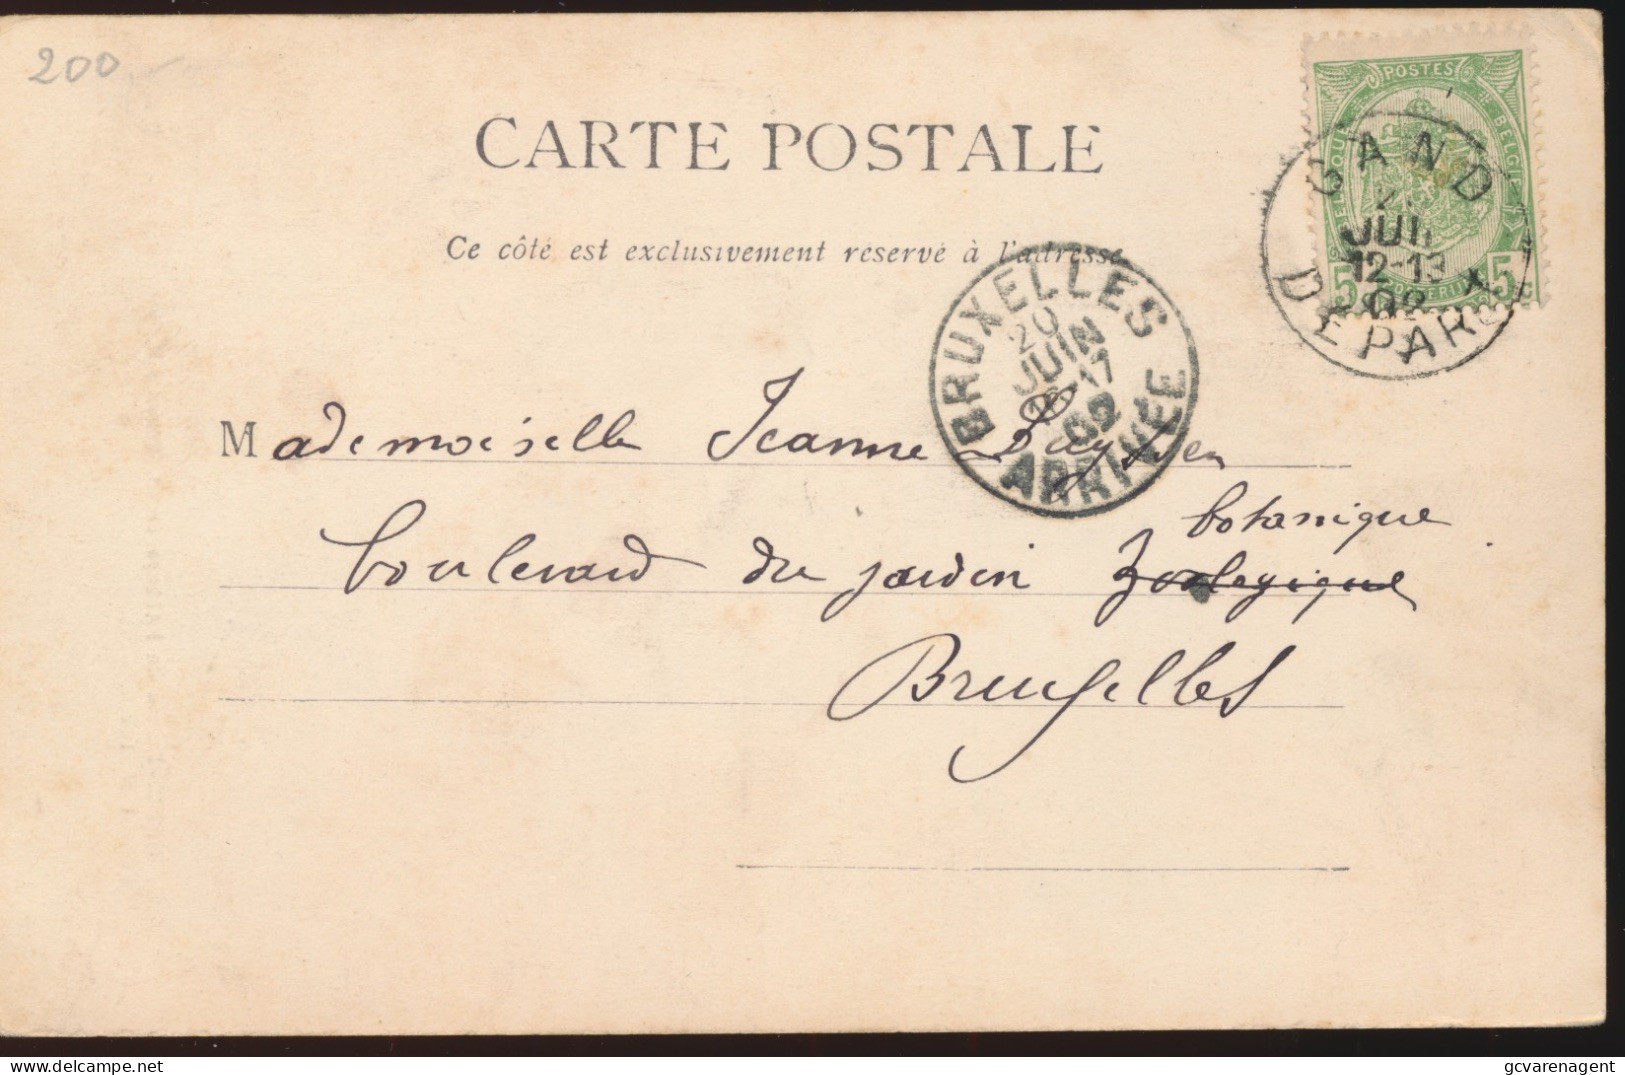 200
CARTE POSTALE
Ce côté est exclusivement réservé à l'adresse
POSTES
BELGIQUE
BELGIE
5
5
GAND
JUI
12-13
02
DEPART
BRUXELLES
20
JUIN
16-17
02
ARRIVÉE
Mademoiselle Jeanne
botanique
boulevard du jardin zoologique
Bruxelles
gcvarenagent